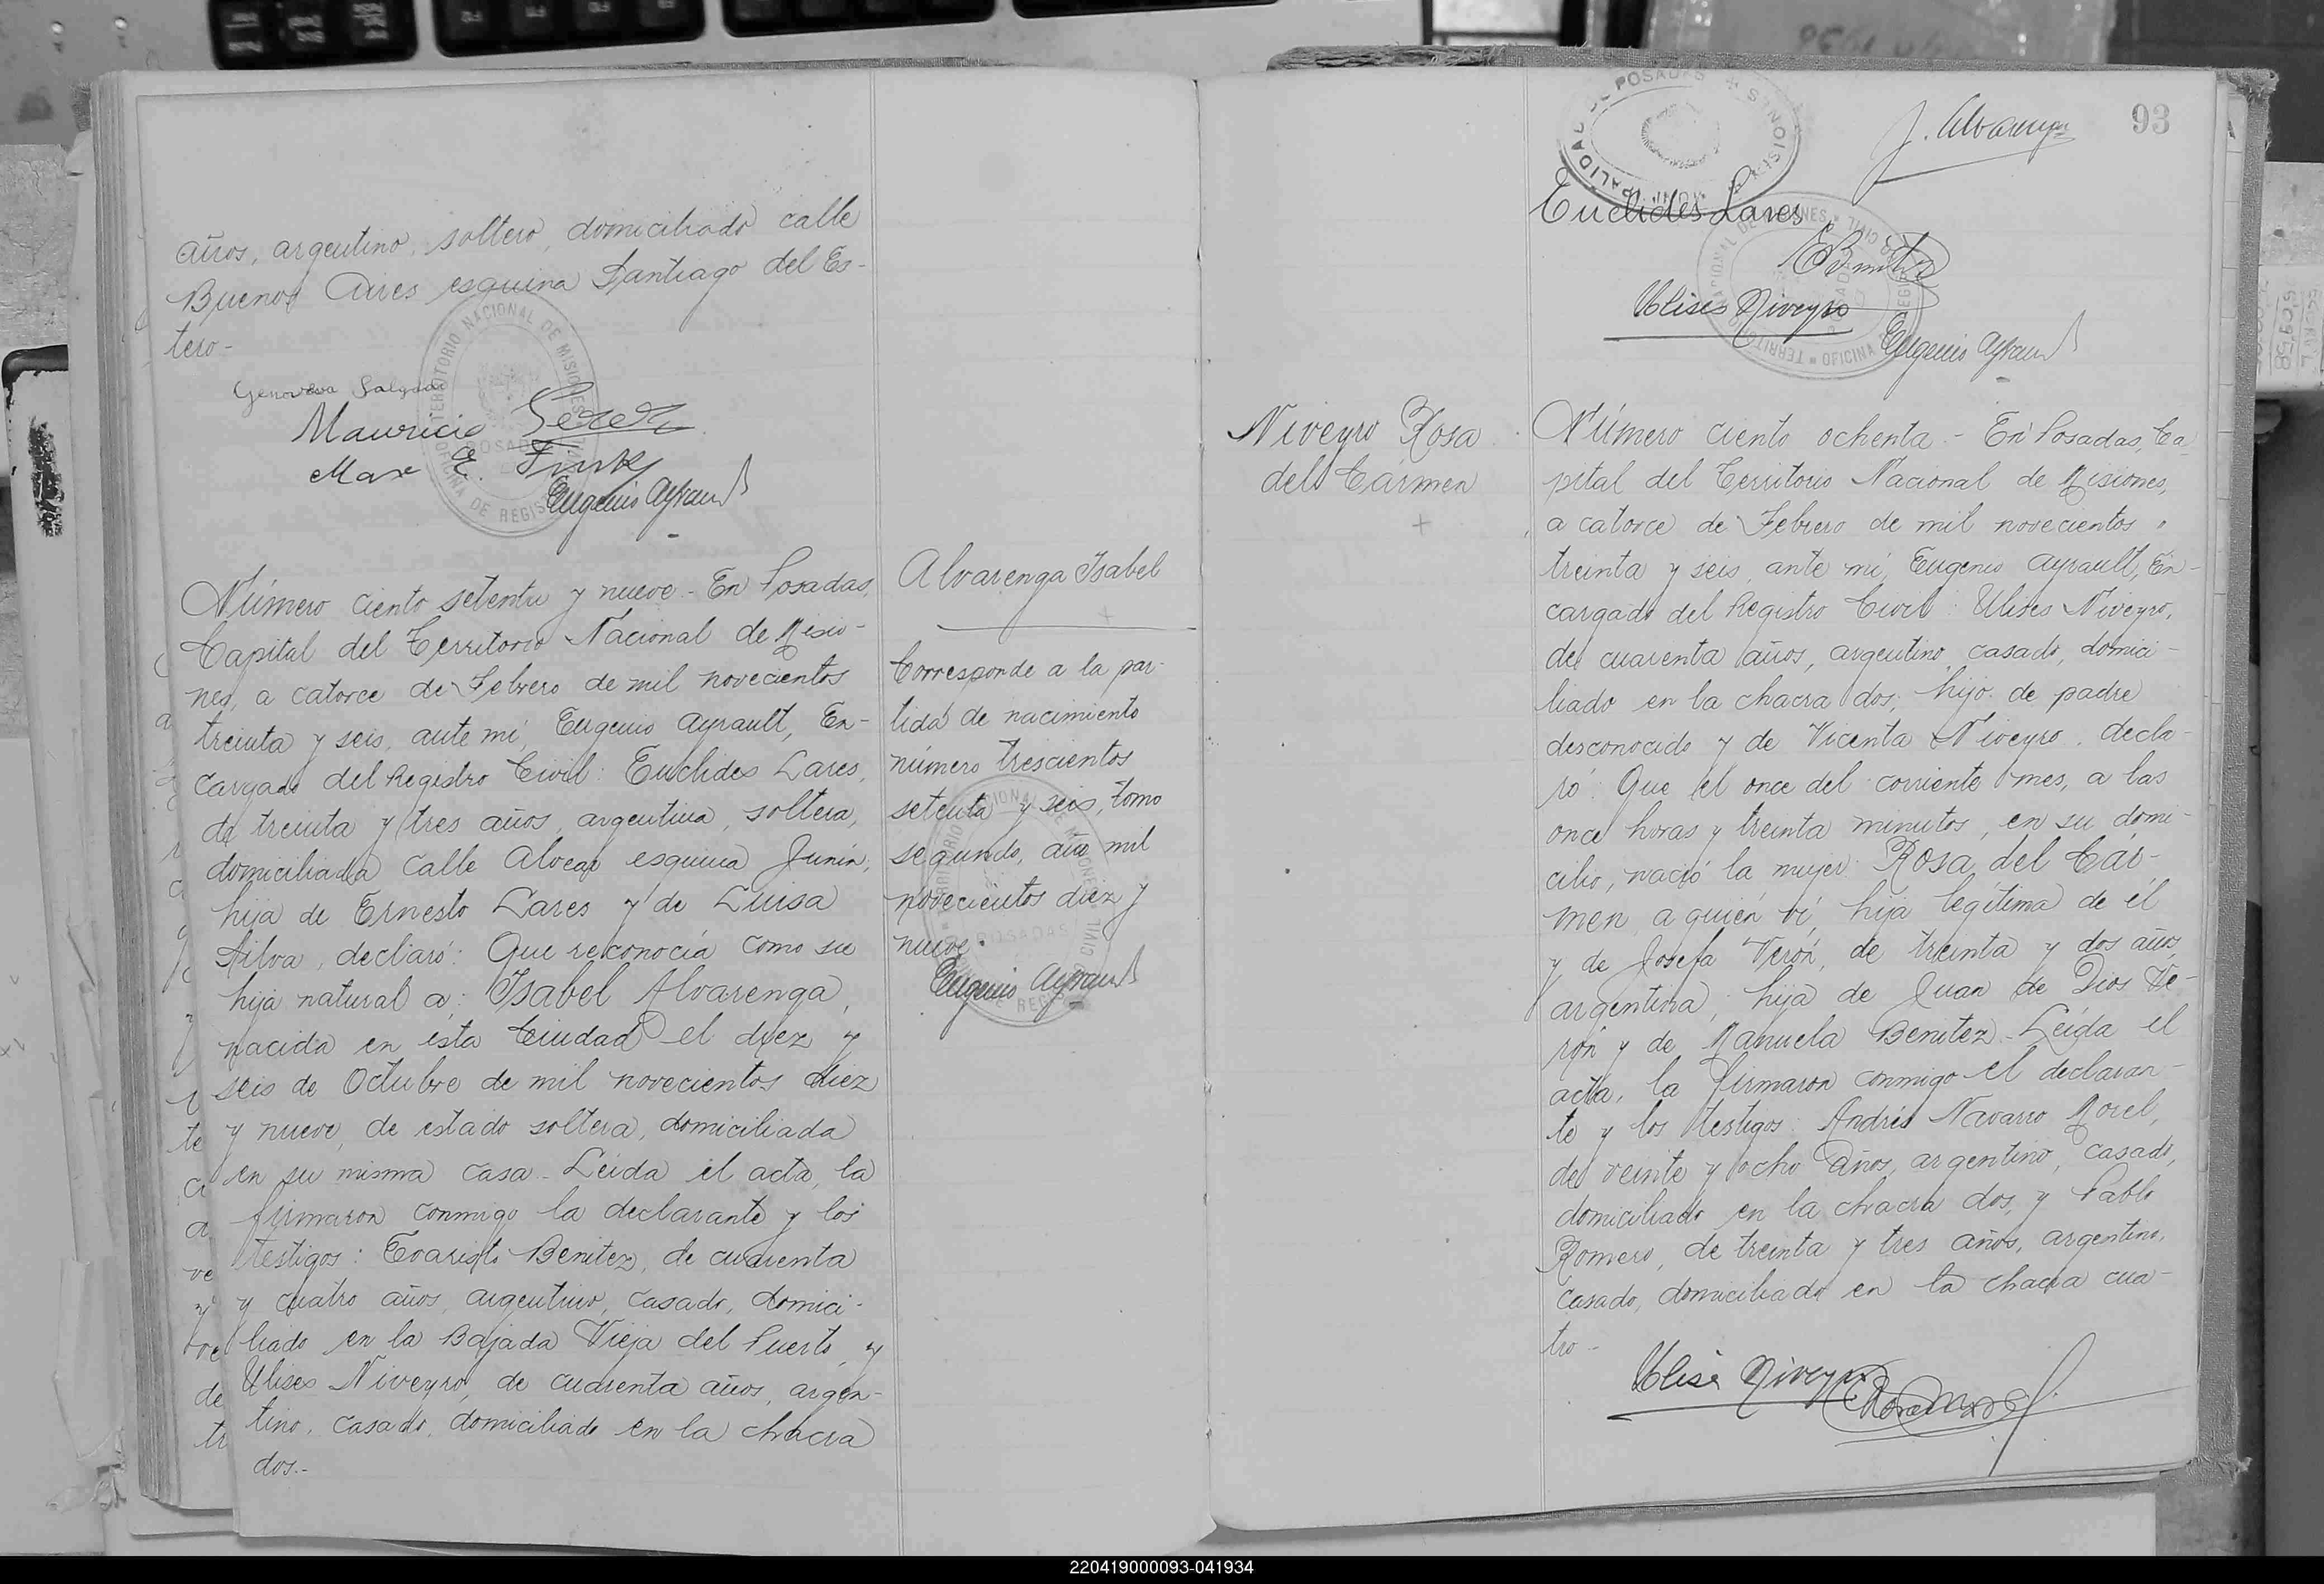 años, argentino, soltero, domiciliado calle
Buenos Aires esquina Santiago del Es-
tero-
Genoveva Salgado
Mauricio
Max E. Fink
Eugenio Ayrault
TERRITORIO NACIONAL DE MISIONES
OFICINA DE REGISTRO CIVIL
POSADAS
Número ciento setenta y nueve.- En Posadas,
Capital del Territorio Nacional de Misio-
nes, a catorce de Febrero de mil novecientos
treinta y seis, ante mí, Eugenio Ayrault, En-
cargado del Registro Civil: Euclides Lares,
de treinta y tres años, argentina, soltera,
domiciliada calle Alvear esquina Junín,
hija de Ernesto Lares y de Luisa
Silva, declaró: Que reconocía como su
hija natural a: Isabel Alvarenga,
nacida en esta Ciudad el diez y
seis de Octubre de mil novecientos diez
y nueve, de estado soltera, domiciliada
en su misma casa.- Leída el acta, la
firmaron conmigo la declarante y los
testigos: Evaristo Benitez, de cuarenta
y cuatro años, argentino, casado, domici-
liado en la Bajada Vieja del Puerto, y
Ulises Niveyro, de cuarenta años, argen-
tino, casado, domiciliado en la chacra
dos.-
Alvarenga Isabel
Corresponde a la par-
tida de nacimiento
número trescientos
setenta y seis, tomo
segundo, año mil
novecientos diez y
nueve.
Eugenio Ayrault
93
J. Alvarenga
Euclides Lares
Ulises Niveyro
Eugenio Ayrault
Niveyro Rosa
del Cármen
Número ciento ochenta.- En Posadas, Ca-
pital del Territorio Nacional de Misiones,
a catorce de Febrero de mil novecientos
treinta y seis, ante mí, Eugenio Ayrault, En-
cargado del Registro Civil: Ulises Niveyro,
de cuarenta años, argentino, casado, domici-
liado en la chacra dos; hijo de padre
desconocido y de Vicenta Niveyro, decla-
ró: Que el once del corriente mes, a las
once horas y treinta minutos, en su domi-
cilio, nació la mujer: Rosa del Cár-
men, a quién ví, hija legítima de él
y de Josefa Verón, de treinta y dos años,
argentina, hija de Juan de Dios Ve-
rón y de Manuela Benitez.- Leída el
acta, la firmaron conmigo el declaran-
te y los testigos: Andrés Navarro Morel,
de veinte y ocho años, argentino, casado,
domiciliado en la chacra dos, y Pablo
Romero, de treinta y tres años, argentino,
casado, domiciliado en la chacra cua-
tro-
Ulises Niveyro
220419000093-041934